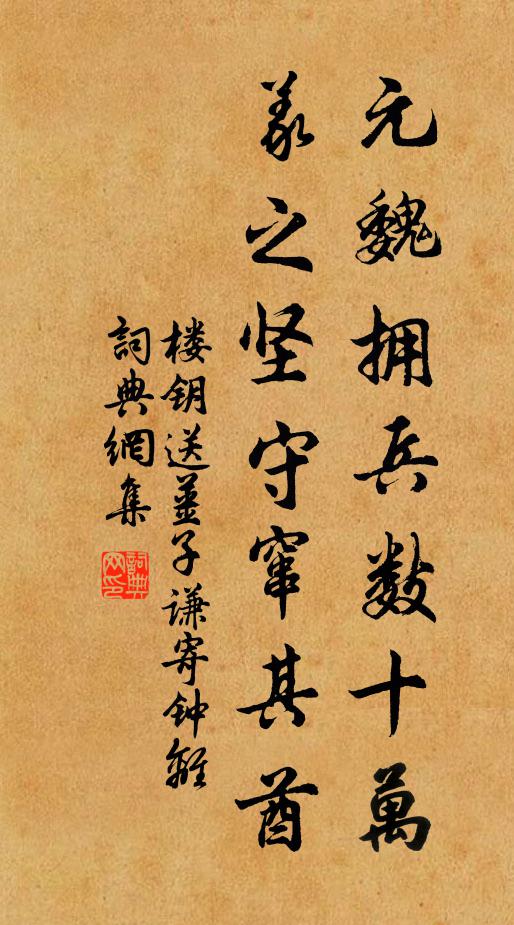 元魏拥兵数十萬
羲之坚守窜其酋
楼钥送薑子谦寄钟離
詞典網集
詞典
网印